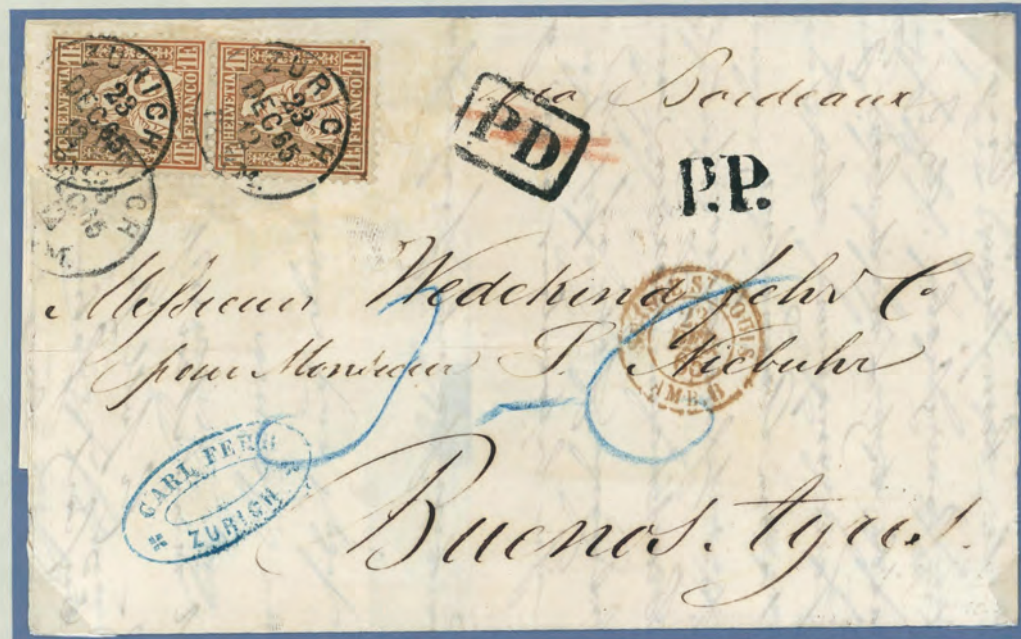 HELVETIA 1F FRANCO 1F
HELVETIA 1F FRANCO 1F
ZÜRICH
23
DEC 65
12
M.
ZÜRICH
23
DEC 65
12
M.
via Bordeaux
PD
P.P.
Messieurs Wedekind Fehr & Co
pour Monsieur P. Niebuhr
ST LOUIS
AMB. B
CARL FEER
ZÜRICH
Buenos Ayres.